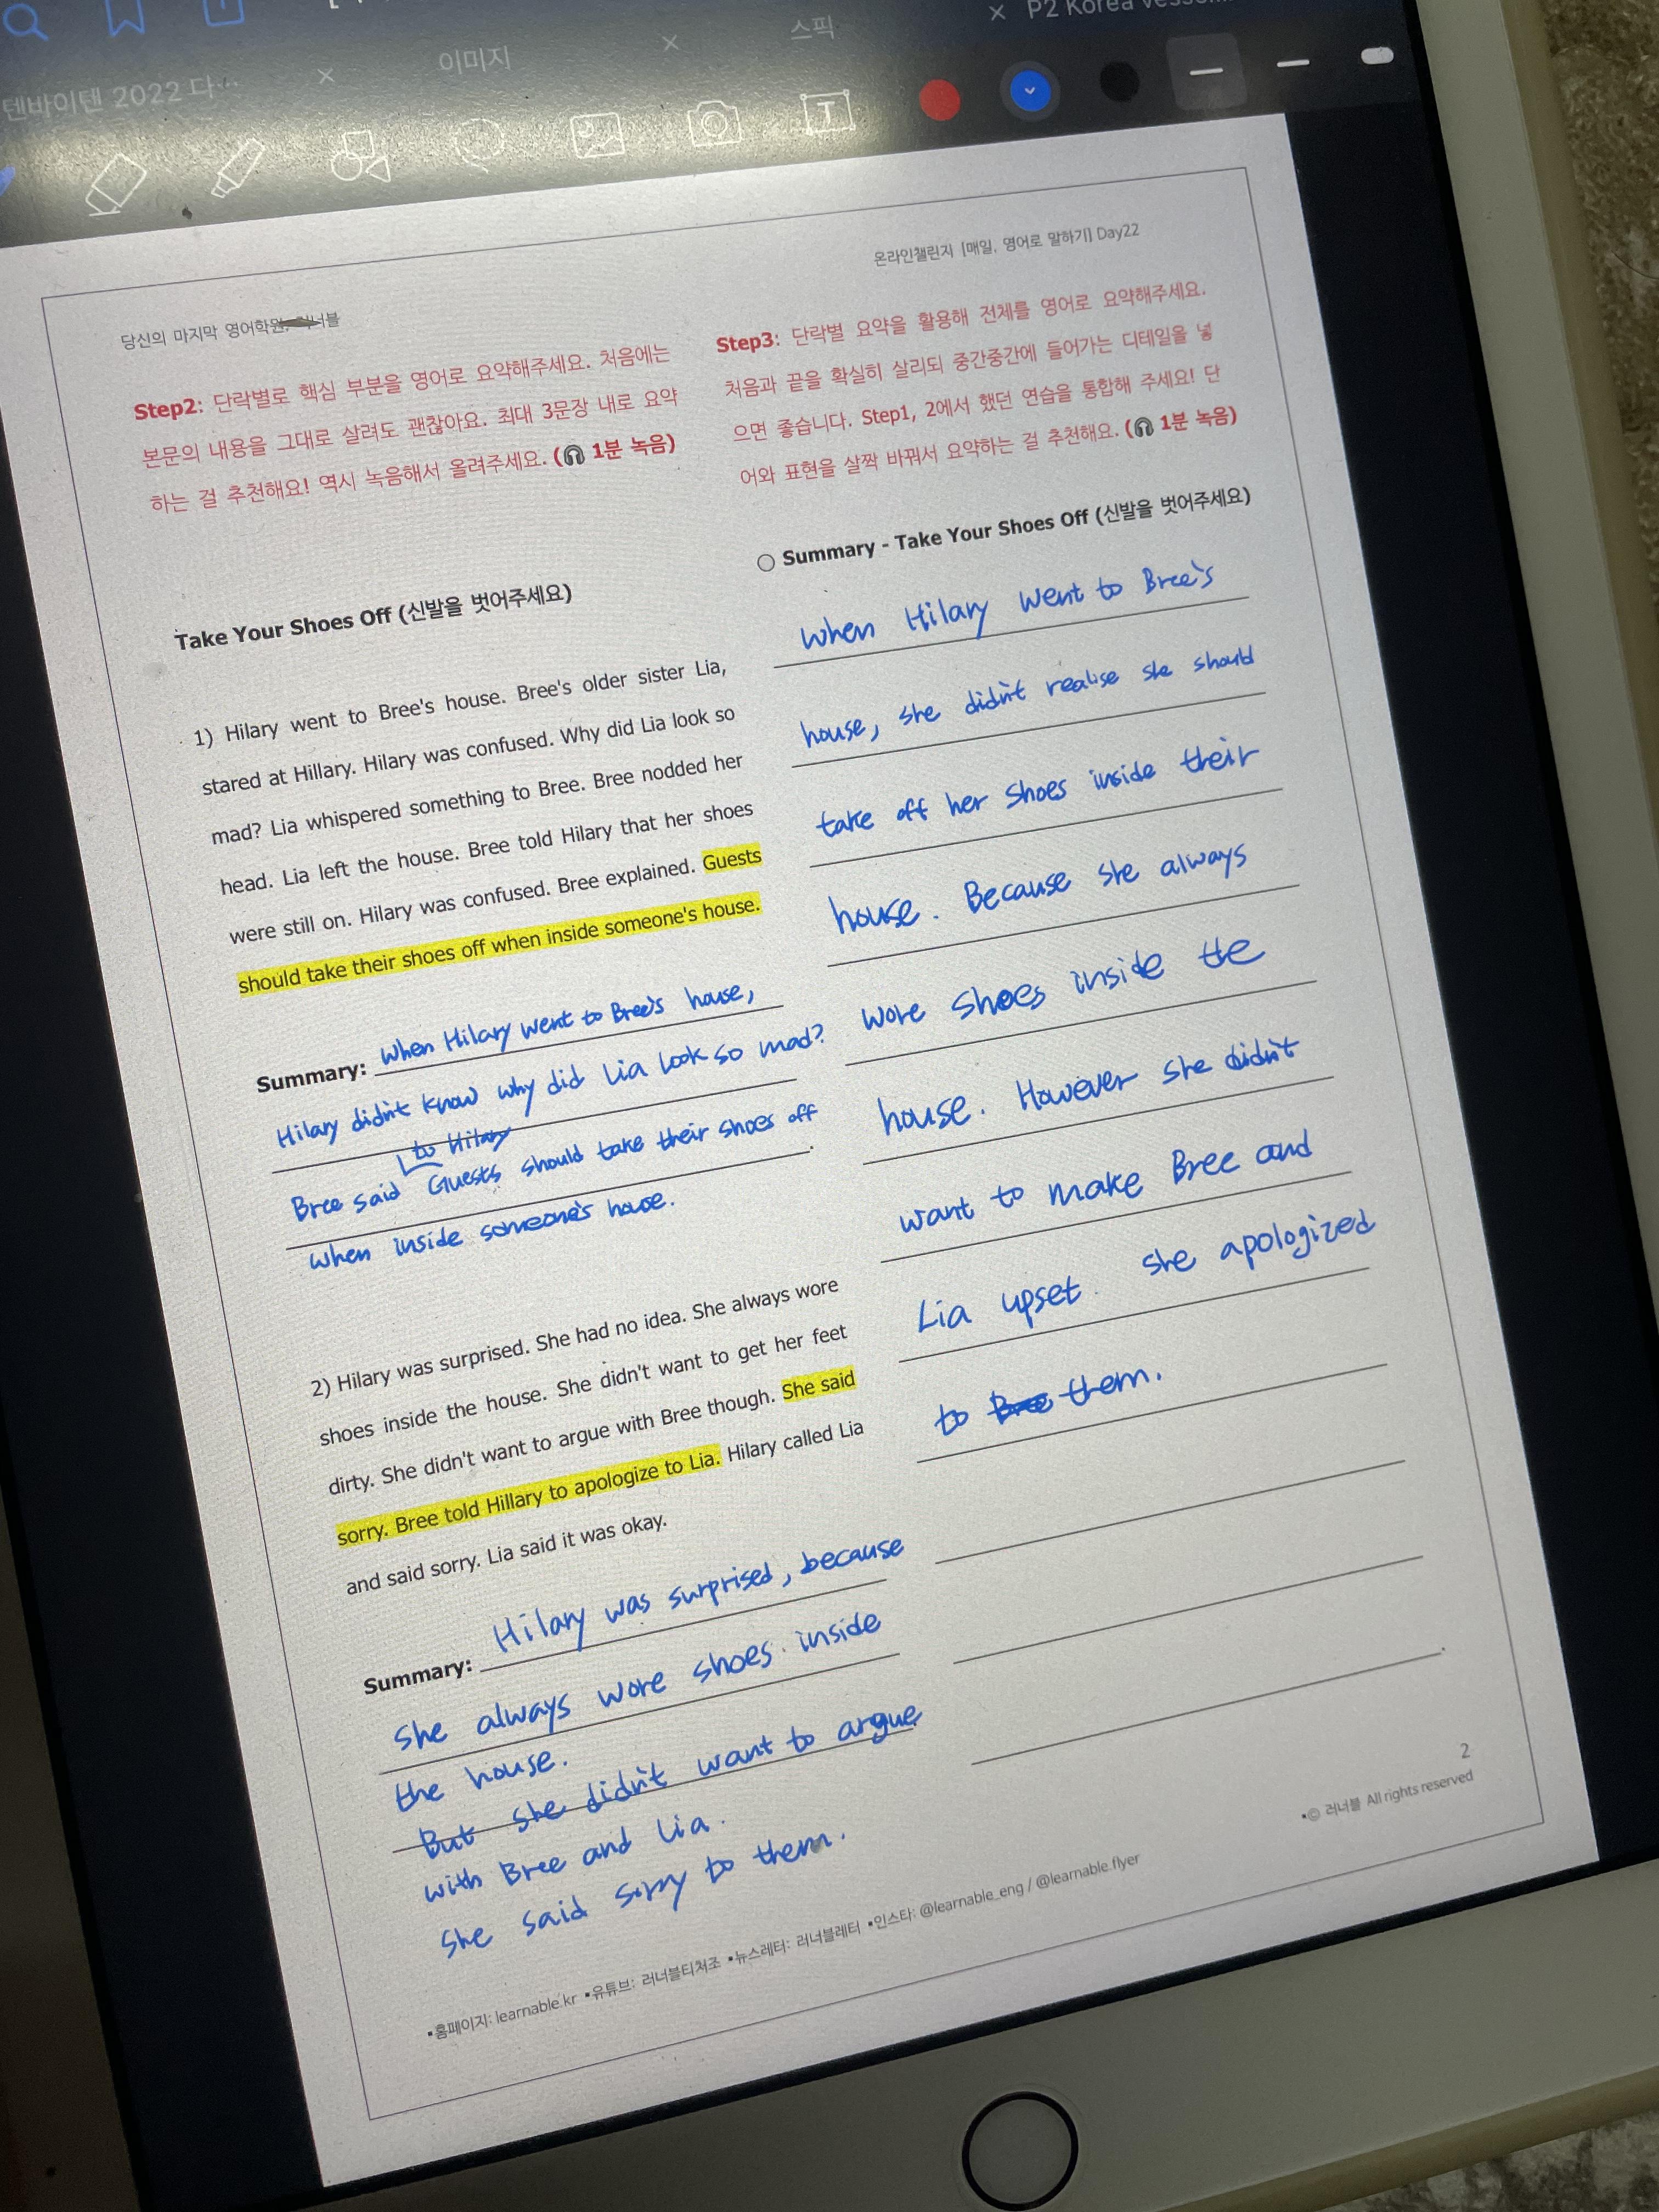 P2 Korea
텐바이텐 2022 다…
이미지
스픽
T
당신의 마지막 영어학원, 러너블
온라인챌린지 [매일, 영어로 말하기] Day22
Step2: 단락별로 핵심 부분을 영어로 요약해주세요. 처음에는
본문의 내용을 그대로 살려도 괜찮아요. 최대 3문장 내로 요약
하는 걸 추천해요! 역시 녹음해서 올려주세요. (🎧 1분 녹음)
Take Your Shoes Off (신발을 벗어주세요)
1) Hilary went to Bree's house. Bree's older sister Lia,
stared at Hillary. Hilary was confused. Why did Lia look so
mad? Lia whispered something to Bree. Bree nodded her
head. Lia left the house. Bree told Hilary that her shoes
were still on. Hilary was confused. Bree explained. Guests
should take their shoes off when inside someone's house.
Summary: When Hilary went to Bree's house,
Hilary didn't know why did Lia look so mad?
to Hilary
Bree said Guests should take their shoes off
when inside someone's house.
2) Hilary was surprised. She had no idea. She always wore
shoes inside the house. She didn't want to get her feet
dirty. She didn't want to argue with Bree though. She said
sorry. Bree told Hillary to apologize to Lia. Hilary called Lia
and said sorry. Lia said it was okay.
Summary: Hilary was surprised, because
she always wore shoes inside
the house.
But she didn't want to argue
with Bree and Lia.
She said sorry to them.
Step3: 단락별 요약을 활용해 전체를 영어로 요약해주세요.
처음과 끝을 확실히 살리되 중간중간에 들어가는 디테일을 넣
으면 좋습니다. Step1, 2에서 했던 연습을 통합해 주세요! 단
어와 표현을 살짝 바꿔서 요약하는 걸 추천해요. (🎧 1분 녹음)
○ Summary - Take Your Shoes Off (신발을 벗어주세요)
When Hilary went to Bree's
house, she didn't realise she should
take off her shoes inside their
house. Because she always
wore shoes inside the
house. However she didn't
want to make Bree and
Lia upset. she apologized
to Bree them.
2
▪© 러너블 All rights reserved
▪홈페이지: learnable.kr ▪유튜브: 러너블티쳐조 ▪뉴스레터: 러너블레터 ▪인스타: @learnable_eng / @learnable.flyer